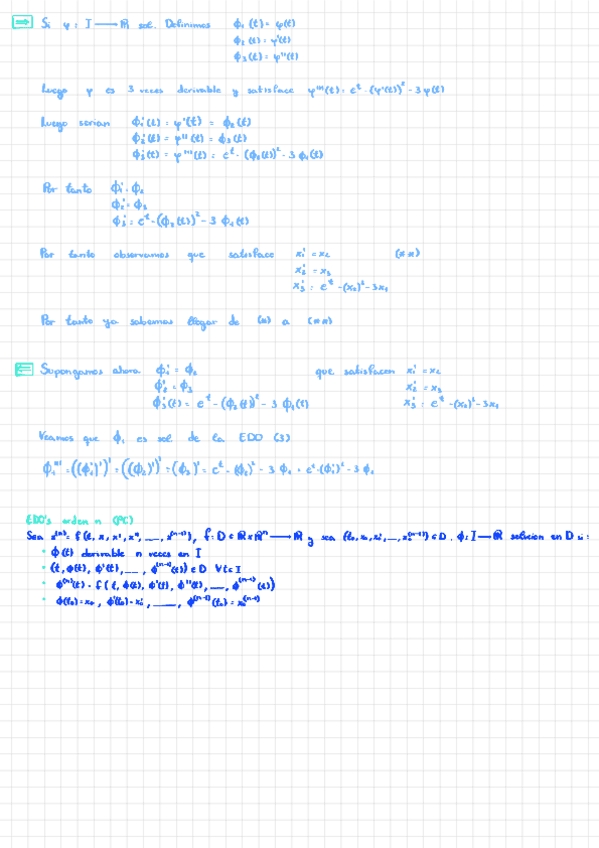 ⇒ Si φ: I → ℝ sol. Definimos ϕ₁(t) = φ(t)
ϕ₂(t) = φ'(t)
ϕ₃(t) = φ''(t)
Luego φ es 3 veces derivable y satisface φ'''(t) = eᵗ - (φ'(t))² - 3φ(t)
Luego serian ϕ₁'(t) = φ'(t) = ϕ₂(t)
ϕ₂'(t) = φ''(t) = ϕ₃(t)
ϕ₃'(t) = φ'''(t) = eᵗ - (ϕ₂(t))² - 3 ϕ₁(t)
Por tanto ϕ₁' = ϕ₂
ϕ₂' = ϕ₃
ϕ₃' = eᵗ - (ϕ₂(t))² - 3 ϕ₁(t)
Por tanto observamos que satisface x₁' = x₂ (**)
x₂' = x₃
x₃' = eᵗ - (x₂)² - 3x₁
Por tanto ya sabemos llegar de (*) a (**)
⇐ Supongamos ahora ϕ₁' = ϕ₂ que satisfacen x₁' = x₂
ϕ₂' = ϕ₃ x₂' = x₃
ϕ₃'(t) = eᵗ - (ϕ₂(t))² - 3 ϕ₁(t) x₃' = eᵗ - (x₂)² - 3x₁
Veamos que ϕ₁ es sol de la EDO (3)
ϕ₁''' = ((ϕ₁')')' = ((ϕ₂)')' = (ϕ₃)' = eᵗ - (ϕ₂)² - 3 ϕ₁ = eᵗ - (ϕ₁')² - 3 ϕ₁
EDO's orden n (PC)
Sea x⁽ⁿ⁾ = f(t, x, x', x'', ..., x⁽ⁿ⁻¹⁾), f: D ⊂ ℝ x ℝⁿ → ℝ y sea (t₀, x₀, x₀', ..., x₀⁽ⁿ⁻¹⁾) ∈ D. ϕ: I → ℝ solucion en D si:
• ϕ(t) derivable n veces en I
• (t, ϕ(t), ϕ'(t), ..., ϕ⁽ⁿ⁻¹⁾(t)) ∈ D ∀t ∈ I
• ϕ⁽ⁿ⁾(t) = f(t, ϕ(t), ϕ'(t), ϕ''(t), ..., ϕ⁽ⁿ⁻¹⁾(t))
• ϕ(t₀) = x₀, ϕ'(t₀) = x₀', ..., ϕ⁽ⁿ⁻¹⁾(t₀) = x₀⁽ⁿ⁻¹⁾